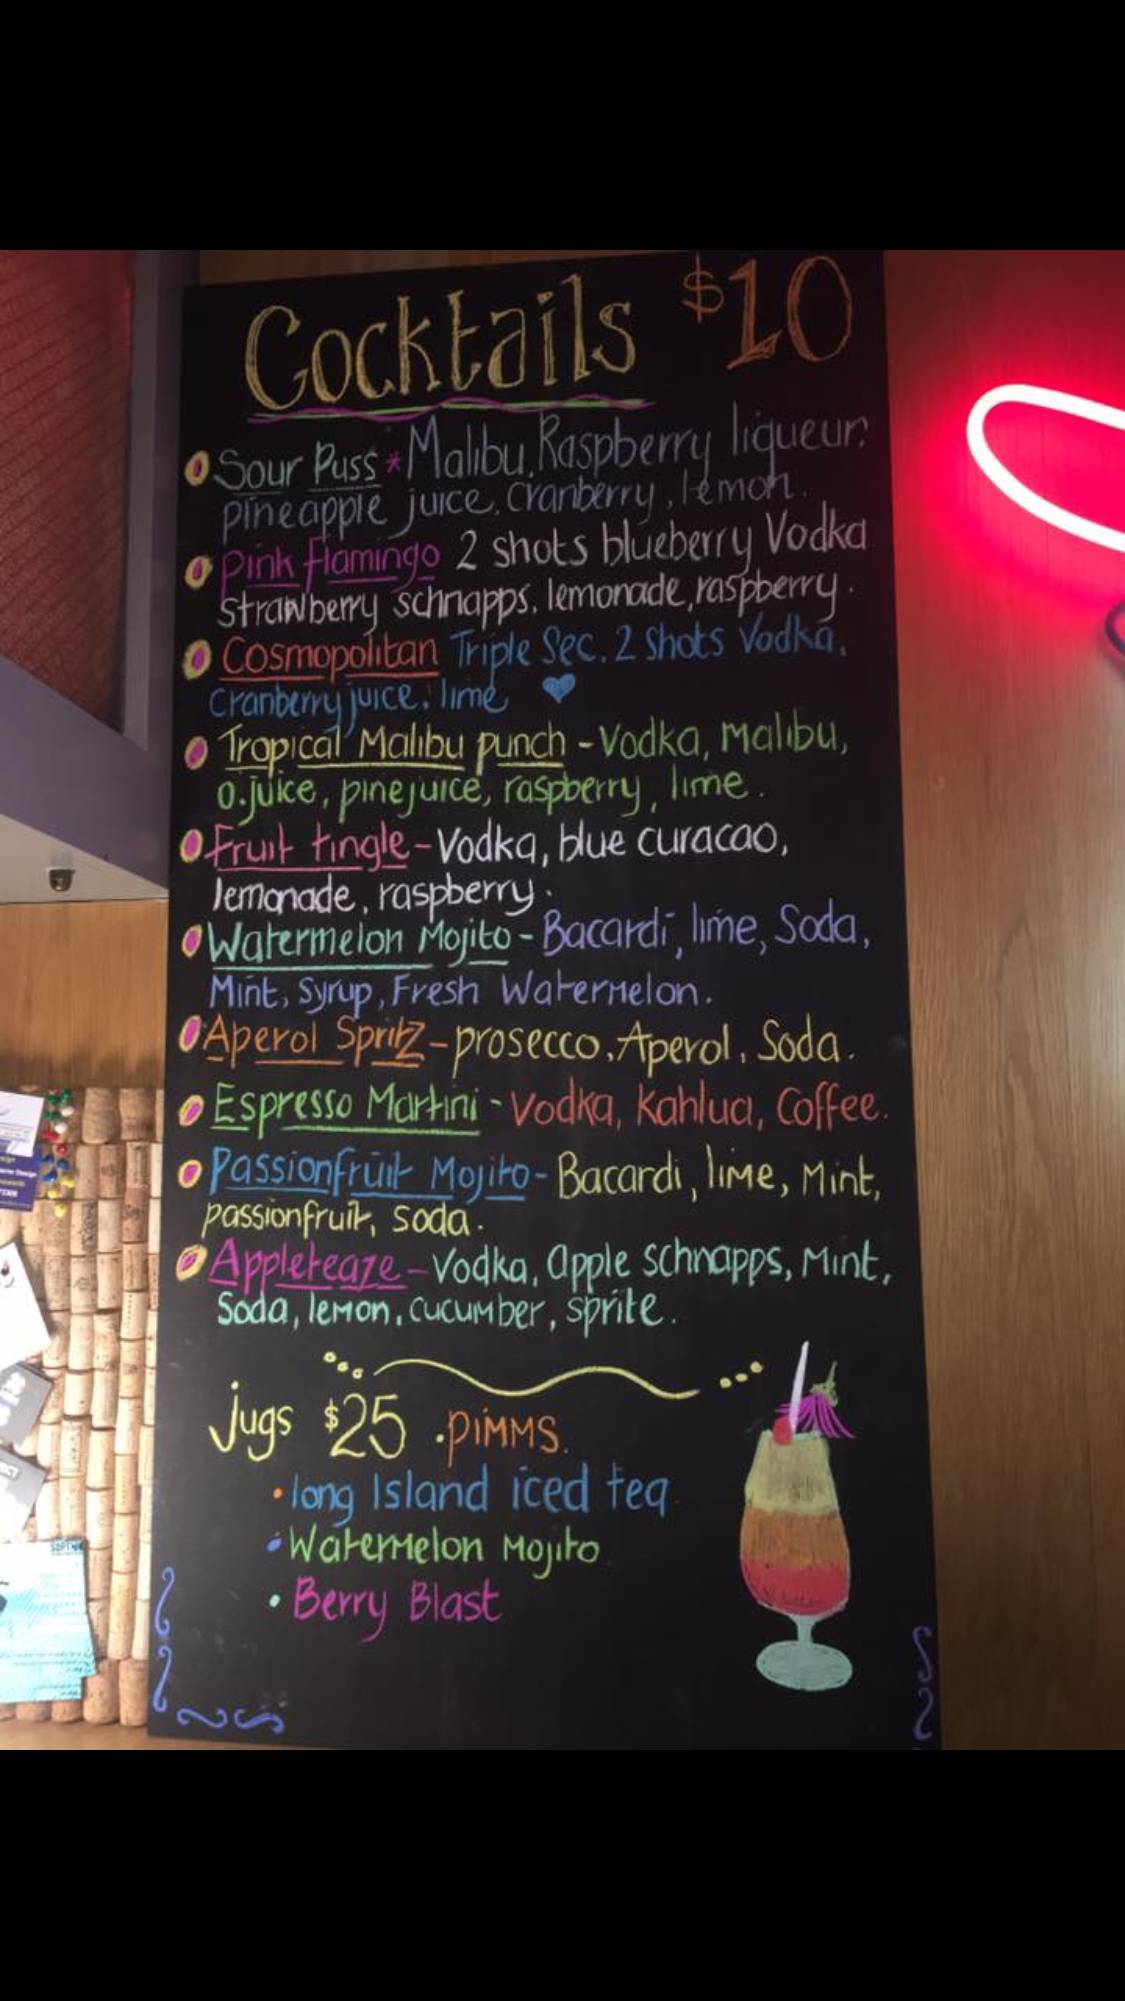 Cocktails $10
Sour Puss * Malibu, Raspberry liqueur,
pineapple juice, Cranberry, lemon.
Pink flamingo 2 shots blueberry Vodka
Strawberry schnapps, lemonade, raspberry.
Cosmopolitan Triple Sec, 2 shots Vodka,
Cranberry juice, lime
Tropical Malibu punch - Vodka, Malibu,
o.juice, pinejuice, raspberry, lime.
Fruit tingle - Vodka, blue curacao,
lemonade, raspberry.
Watermelon Mojito - Bacardi, lime, Soda,
Mint, Syrup, Fresh Watermelon.
Aperol Spritz - prosecco, Aperol, Soda.
Espresso Martini - Vodka, Kahlua, Coffee.
Passionfruit Mojito - Bacardi, lime, Mint,
passionfruit, soda.
Appleteaze - Vodka, apple schnapps, Mint,
Soda, lemon, cucumber, sprite.
Jugs $25 .PIMMS.
• long Island iced tea
• Watermelon Mojito
• Berry Blast